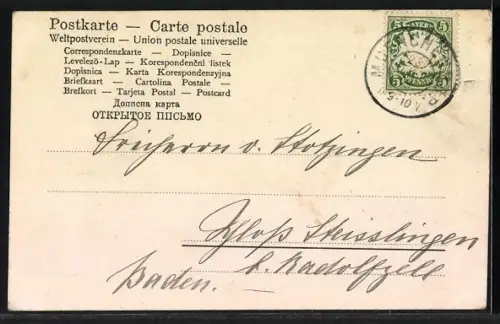 Postkarte — Carte postale
Weltpostverein — Union postale universelle
Correspondenzkarte — Dopisnice —
Levelező-Lap — Korespondenční lístek
Dopisnica — Karta Korespondenzyjna
Briefkaart — Cartolina Postale —
Brefkort — Tarjeta Postal — Postcard
Дописна карта
ОТКРЫТОЕ ПИСЬМО
5 BAYERN 5
5 5
MÜNCHEN
9-10 V.
Freiherrn v. Stotzingen
Schloß Steisslingen
b. Radolfzell
Baden.